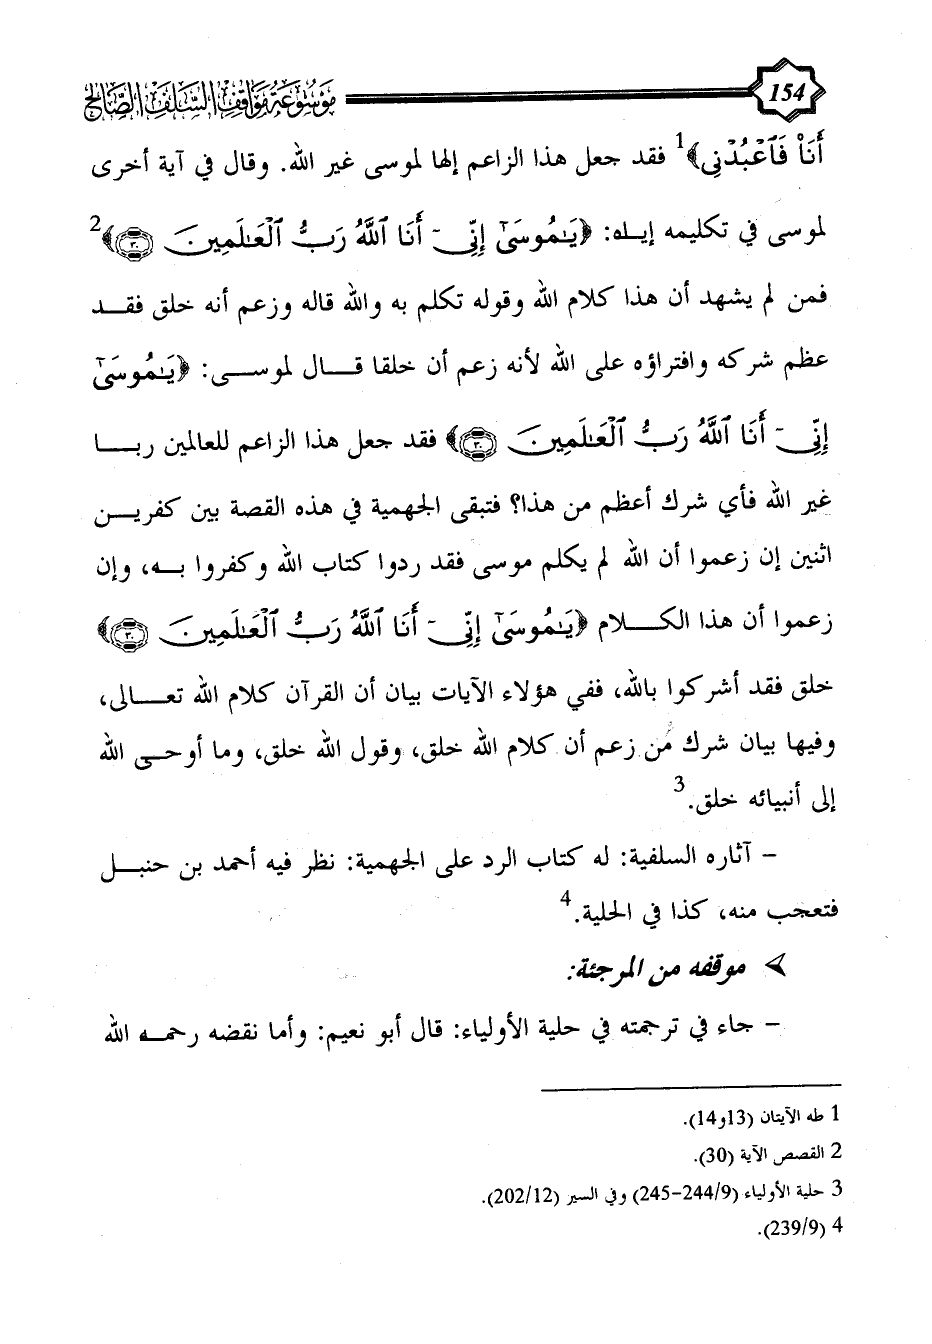 154 موسوعة مواقف السلف الصالح
أَنَا۠ فَٱعْبُدْنِى﴾1 فقد جعل هذا الزاعم إلها لموسى غير الله. وقال في آية أخرى
لموسى في تكليمه إياه: ﴿يَٰمُوسَىٰٓ إِنِّىٓ أَنَا ٱللَّهُ رَبُّ ٱلْعَٰلَمِينَ ٣٠﴾2
فمن لم يشهد أن هذا كلام الله وقوله تكلم به والله قاله وزعم أنه خلق فقد
عظم شركه وافتراؤه على الله لأنه زعم أن خلقا قال لموسى: ﴿يَٰمُوسَىٰٓ
إِنِّىٓ أَنَا ٱللَّهُ رَبُّ ٱلْعَٰلَمِينَ ٣٠﴾ فقد جعل هذا الزاعم للعالمين ربا
غير الله فأي شرك أعظم من هذا؟ فتبقى الجهمية في هذه القصة بين كفرين
اثنين إن زعموا أن الله لم يكلم موسى فقد ردوا كتاب الله وكفروا به، وإن
زعموا أن هذا الكلام ﴿يَٰمُوسَىٰٓ إِنِّىٓ أَنَا ٱللَّهُ رَبُّ ٱلْعَٰلَمِينَ ٣٠﴾
خلق فقد أشركوا بالله، ففي هؤلاء الآيات بيان أن القرآن كلام الله تعالى،
وفيها بيان شرك من زعم أن كلام الله خلق، وقول الله خلق، وما أوحى الله
إلى أنبيائه خلق.3
– آثاره السلفية: له كتاب الرد على الجهمية: نظر فيه أحمد بن حنبل
فتعجب منه، كذا في الحلية.4
➢ موقفه من المرجئة:
– جاء في ترجمته في حلية الأولياء: قال أبو نعيم: وأما نقضه رحمه الله
1 طه الآيتان (13و14).
2 القصص الآية (30).
3 حلية الأولياء (9/244-245) وفي السير (12/202).
4 (9/239).